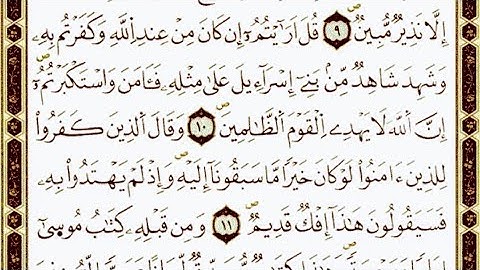 إِلَّا نَذِيرٌ مُّبِينٌ ٩ قُلْ أَرَٰيْتُمُۥٓ إِن كَانَ مِنْ عِندِ اِ۬للَّهِ وَكَفَرْتُم بِهِۦ
وَشَهِدَ شَاهِدٌ مِّنۢ بَنِےٓ إِسْرَآءِيلَ عَلَىٰ مِثْلِهِۦ فَـَٔامَنَ وَاسْتَكْبَرْتُمُۥٓ
إِنَّ اَ۬للَّهَ لَا يَهْدِے اِ۬لْقَوْمَ اَ۬لظَّٰلِمِينَ ١٠ وَقَالَ اَ۬لذِينَ كَفَرُواْ
لِلذِينَ ءَامَنُواْ لَوْ كَانَ خَيْراً مَّا سَبَقُونَآ إِلَيْهِ وَإِذْ لَمْ يَهْتَدُواْ بِهِۦ
فَسَيَقُولُونَ هَٰذَآ إِفْكٌ قَدِيمٌ ١١ وَمِن قَبْلِهِۦ كِتَٰبُ مُوسَىٰٓ